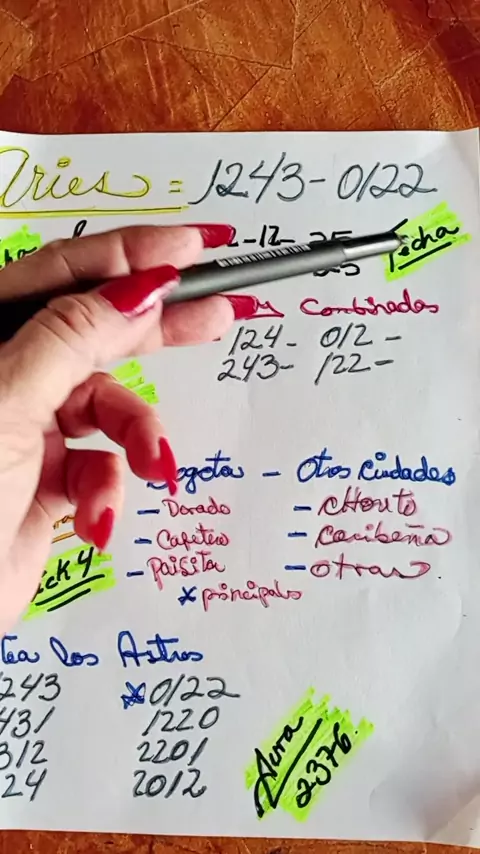 Aries = 1243-0122
-12-25 Fecha
25
y Combinados
124- 012-
243- 122-
Bogota - Otros Ciudades
- Dorado - CHONTO
- Cafetero - Caribeña
- Paisita - otras
ick 4
* principales
los Astros
243 *0122
431 1220
312 2201
24 2012
Aura
2376